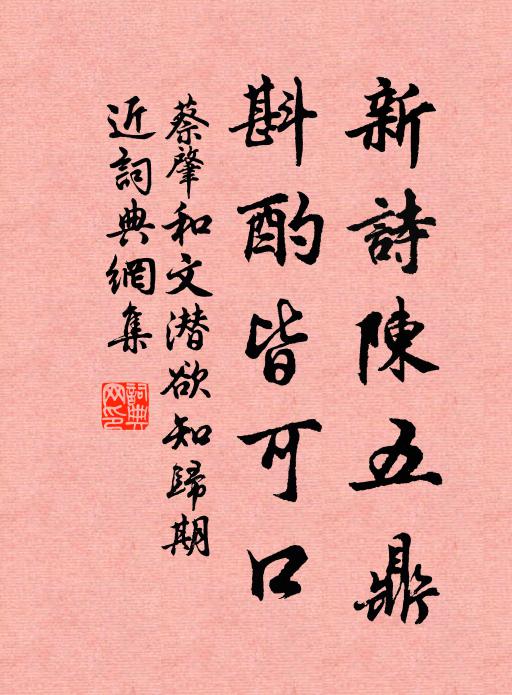 新詩陳五鼎
斟酌皆可口
蔡肇和文潜欲知歸期
近詞典網集
詞典网印